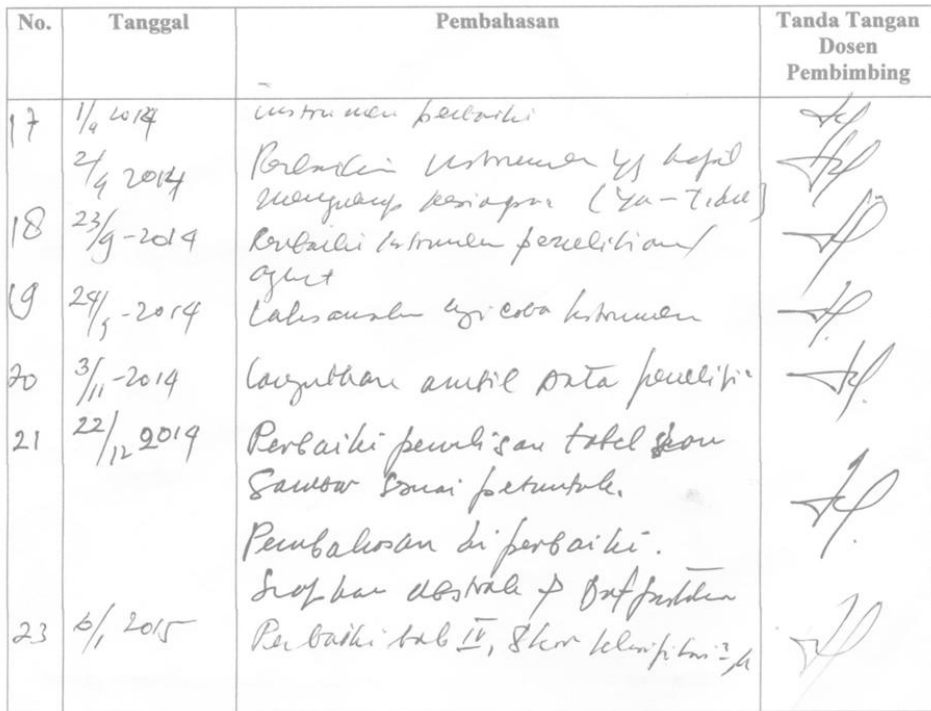 No. Tanggal Pembahasan Tanda Tangan
Dosen
Pembimbing
17 1/9 2014 instrumen perbaiki
2/9 2014 Perbaiki instrumen yg
(Ya - Tidak)
18 23/9-2014 Perbaiki instrumen penelitian
19 24/9-2014 Laksanakan uji coba instrumen
20 3/11-2014 Lanjutkan ambil data penelitia
21 22/12 2014 Perbaiki penulisan tabel dan
Gambar sesuai petunjuk.
Pembahasan di perbaiki.
Siapkan abstrak
23 6/1 2015 Perbaiki bab IV, Skor klasifikasi